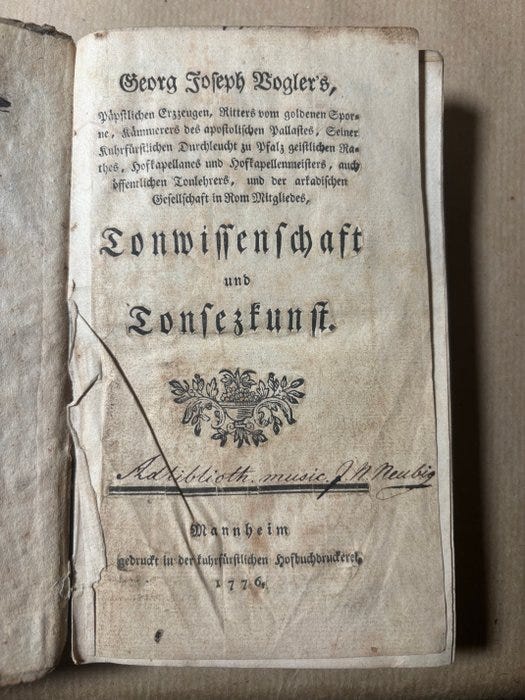 Georg Joseph Vogler's,
Päpstlichen Erzzeugen, Ritters vom goldenen Spor-
ne, Kämmerers des apostolischen Pallastes, Seiner
Kuhrfürstlichen Durchleucht zu Pfalz geistlichen Ra-
thes, Hofkapellanes und Hofkapellenmeisters, auch
öffentlichen Tonlehrers, und der arkadischen
Gesellschaft in Rom Mitgliedes,
Tonwissenschaft
und
Tonsezkunst.
Ad biblioth. music. J N Neubig
Mannheim
gedruckt in der kuhrfürstlichen Hofbuchdruckerei,
1776.